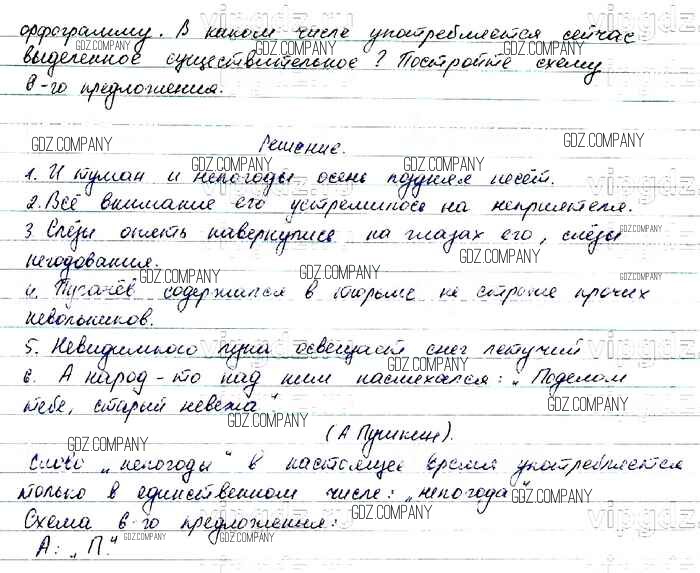 орфограмму. В каком числе употребляется сейчас
выделенное существительное? Постройте схему
6-го предложения.
Решение.
1. И туман и непогоды осень поздняя несёт.
2. Всё внимание его устремилось на неприятеля.
3 Слёзы опять навернулись на глазах его, слёзы
негодования.
4. Пугачёв содержался в тюрьме не строже прочих
невольников.
5. Невидимкою луна освещает снег летучий
6. А народ-то над ним насмехался: „Поделом
тебе, старый невежа".
(А Пушкин).
Слово „непогоды" в настоящее время употребляется
только в единственном числе: „непогода"
Схема 6-го предложения:
А: „П."